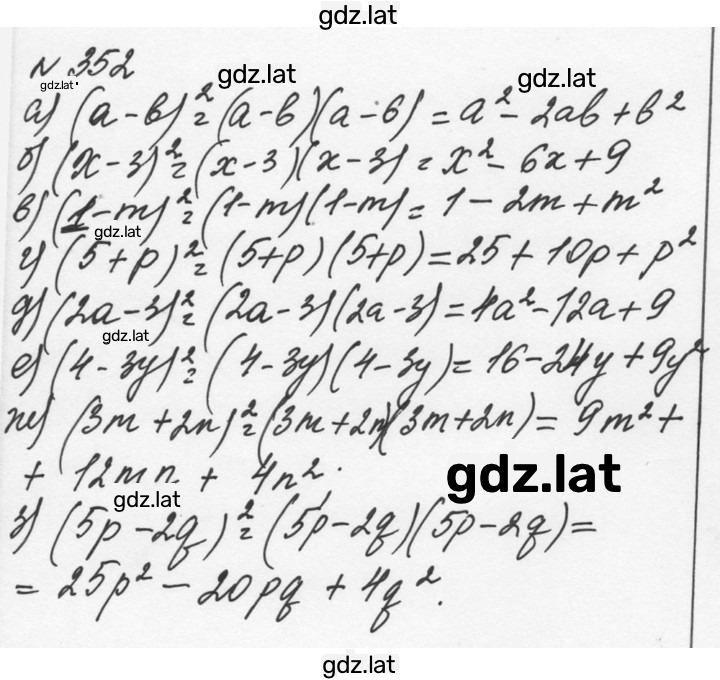 gdz.lat
N 352
gdz.lat
gdz.lat
gdz.lat
а) (a - b)² = (a - b)(a - b) = a² - 2ab + b²
б) (x - 3)² = (x - 3)(x - 3) = x² - 6x + 9
в) (1 - m)² = (1 - m)(1 - m) = 1 - 2m + m²
gdz.lat
г) (5 + p)² = (5 + p)(5 + p) = 25 + 10p + p²
д) (2a - 3)² = (2a - 3)(2a - 3) = 4a² - 12a + 9
gdz.lat
е) (4 - 3y)² = (4 - 3y)(4 - 3y) = 16 - 24y + 9y²
ж) (3m + 2n)² = (3m + 2n)(3m + 2n) = 9m² +
+ 12mn + 4n².
gdz.lat
gdz.lat
з) (5p - 2q)² = (5p - 2q)(5p - 2q) =
= 25p² - 20pq + 4q².
gdz.lat